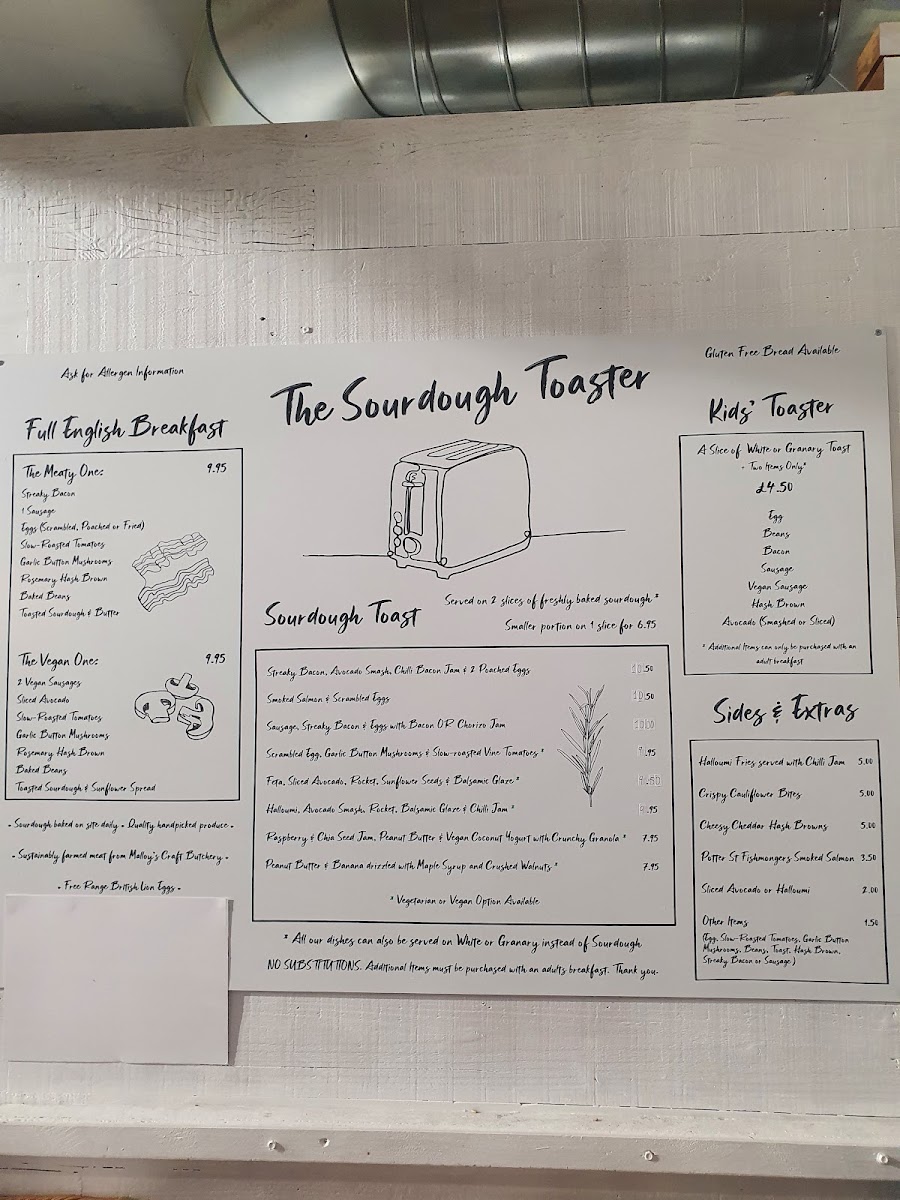 Ask for Allergen Information
Gluten Free Bread Available
The Sourdough Toaster
Full English Breakfast
The Meaty One: 9.95
Streaky Bacon
1 Sausage
Eggs (Scrambled, Poached or Fried)
Slow-Roasted Tomatoes
Garlic Button Mushrooms
Rosemary Hash Brown
Baked Beans
Toasted Sourdough & Butter
The Vegan One: 9.95
2 Vegan Sausages
Sliced Avocado
Slow-Roasted Tomatoes
Garlic Button Mushrooms
Rosemary Hash Brown
Baked Beans
Toasted Sourdough & Sunflower Spread
- Sourdough baked on site daily - Quality handpicked produce -
- Sustainably farmed meat from Malloy's Craft Butchery -
- Free Range British Lion Eggs -
Sourdough Toast
Served on 2 slices of freshly baked sourdough *
Smaller portion on 1 slice for 6.95
Streaky Bacon, Avocado Smash, Chilli Bacon Jam & 2 Poached Eggs 10.50
Smoked Salmon & Scrambled Eggs 10.50
Sausage, Streaky Bacon & Eggs with Bacon OR Chorizo Jam
Scrambled Egg, Garlic Button Mushrooms & Slow-roasted Vine Tomatoes * .95
Feta, Sliced Avocado, Rocket, Sunflower Seeds & Balsamic Glaze * .50
Halloumi, Avocado Smash, Rocket, Balsamic Glaze & Chilli Jam * .95
Raspberry & Chia Seed Jam, Peanut Butter & Vegan Coconut Yogurt with Crunchy Granola * 7.95
Peanut Butter & Banana drizzled with Maple Syrup and Crushed Walnuts * 7.95
* Vegetarian or Vegan Option Available
* All our dishes can also be served on White or Granary instead of Sourdough
NO SUBSTITUTIONS. Additional Items must be purchased with an adults breakfast. Thank you.
Kids' Toaster
A Slice of White or Granary Toast
+ Two Items Only*
£4.50
Egg
Beans
Bacon
Sausage
Vegan Sausage
Hash Brown
Avocado (Smashed or Sliced)
* Additional Items can only be purchased with an
adult breakfast
Sides & Extras
Halloumi Fries served with Chilli Jam 5.00
Crispy Cauliflower Bites 5.00
Cheesy Cheddar Hash Browns 5.00
Potter St Fishmongers Smoked Salmon 3.50
Sliced Avocado or Halloumi 2.00
Other Items 1.50
(Egg, Slow-Roasted Tomatoes, Garlic Button
Mushrooms, Beans, Toast, Hash Brown,
Streaky Bacon or Sausage)